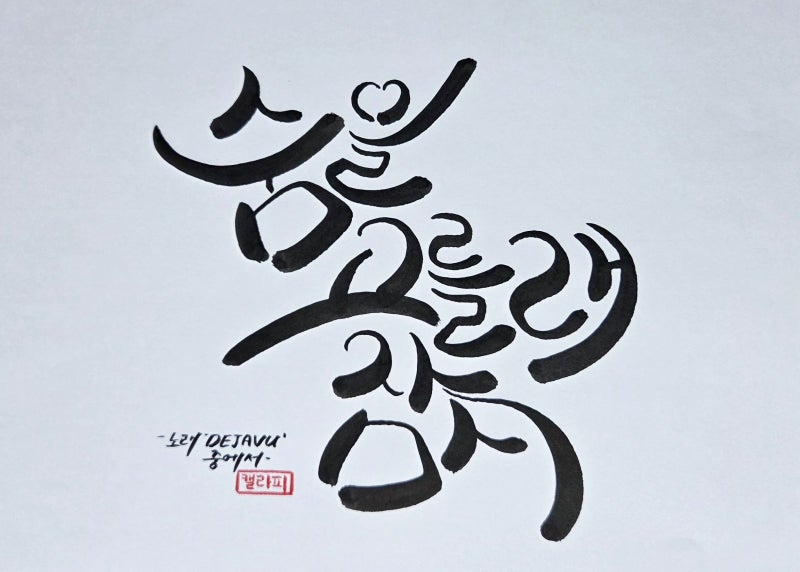 숨을
고를래
잠시
- 노래 'DEJAVU'
중에서 -
캘라피